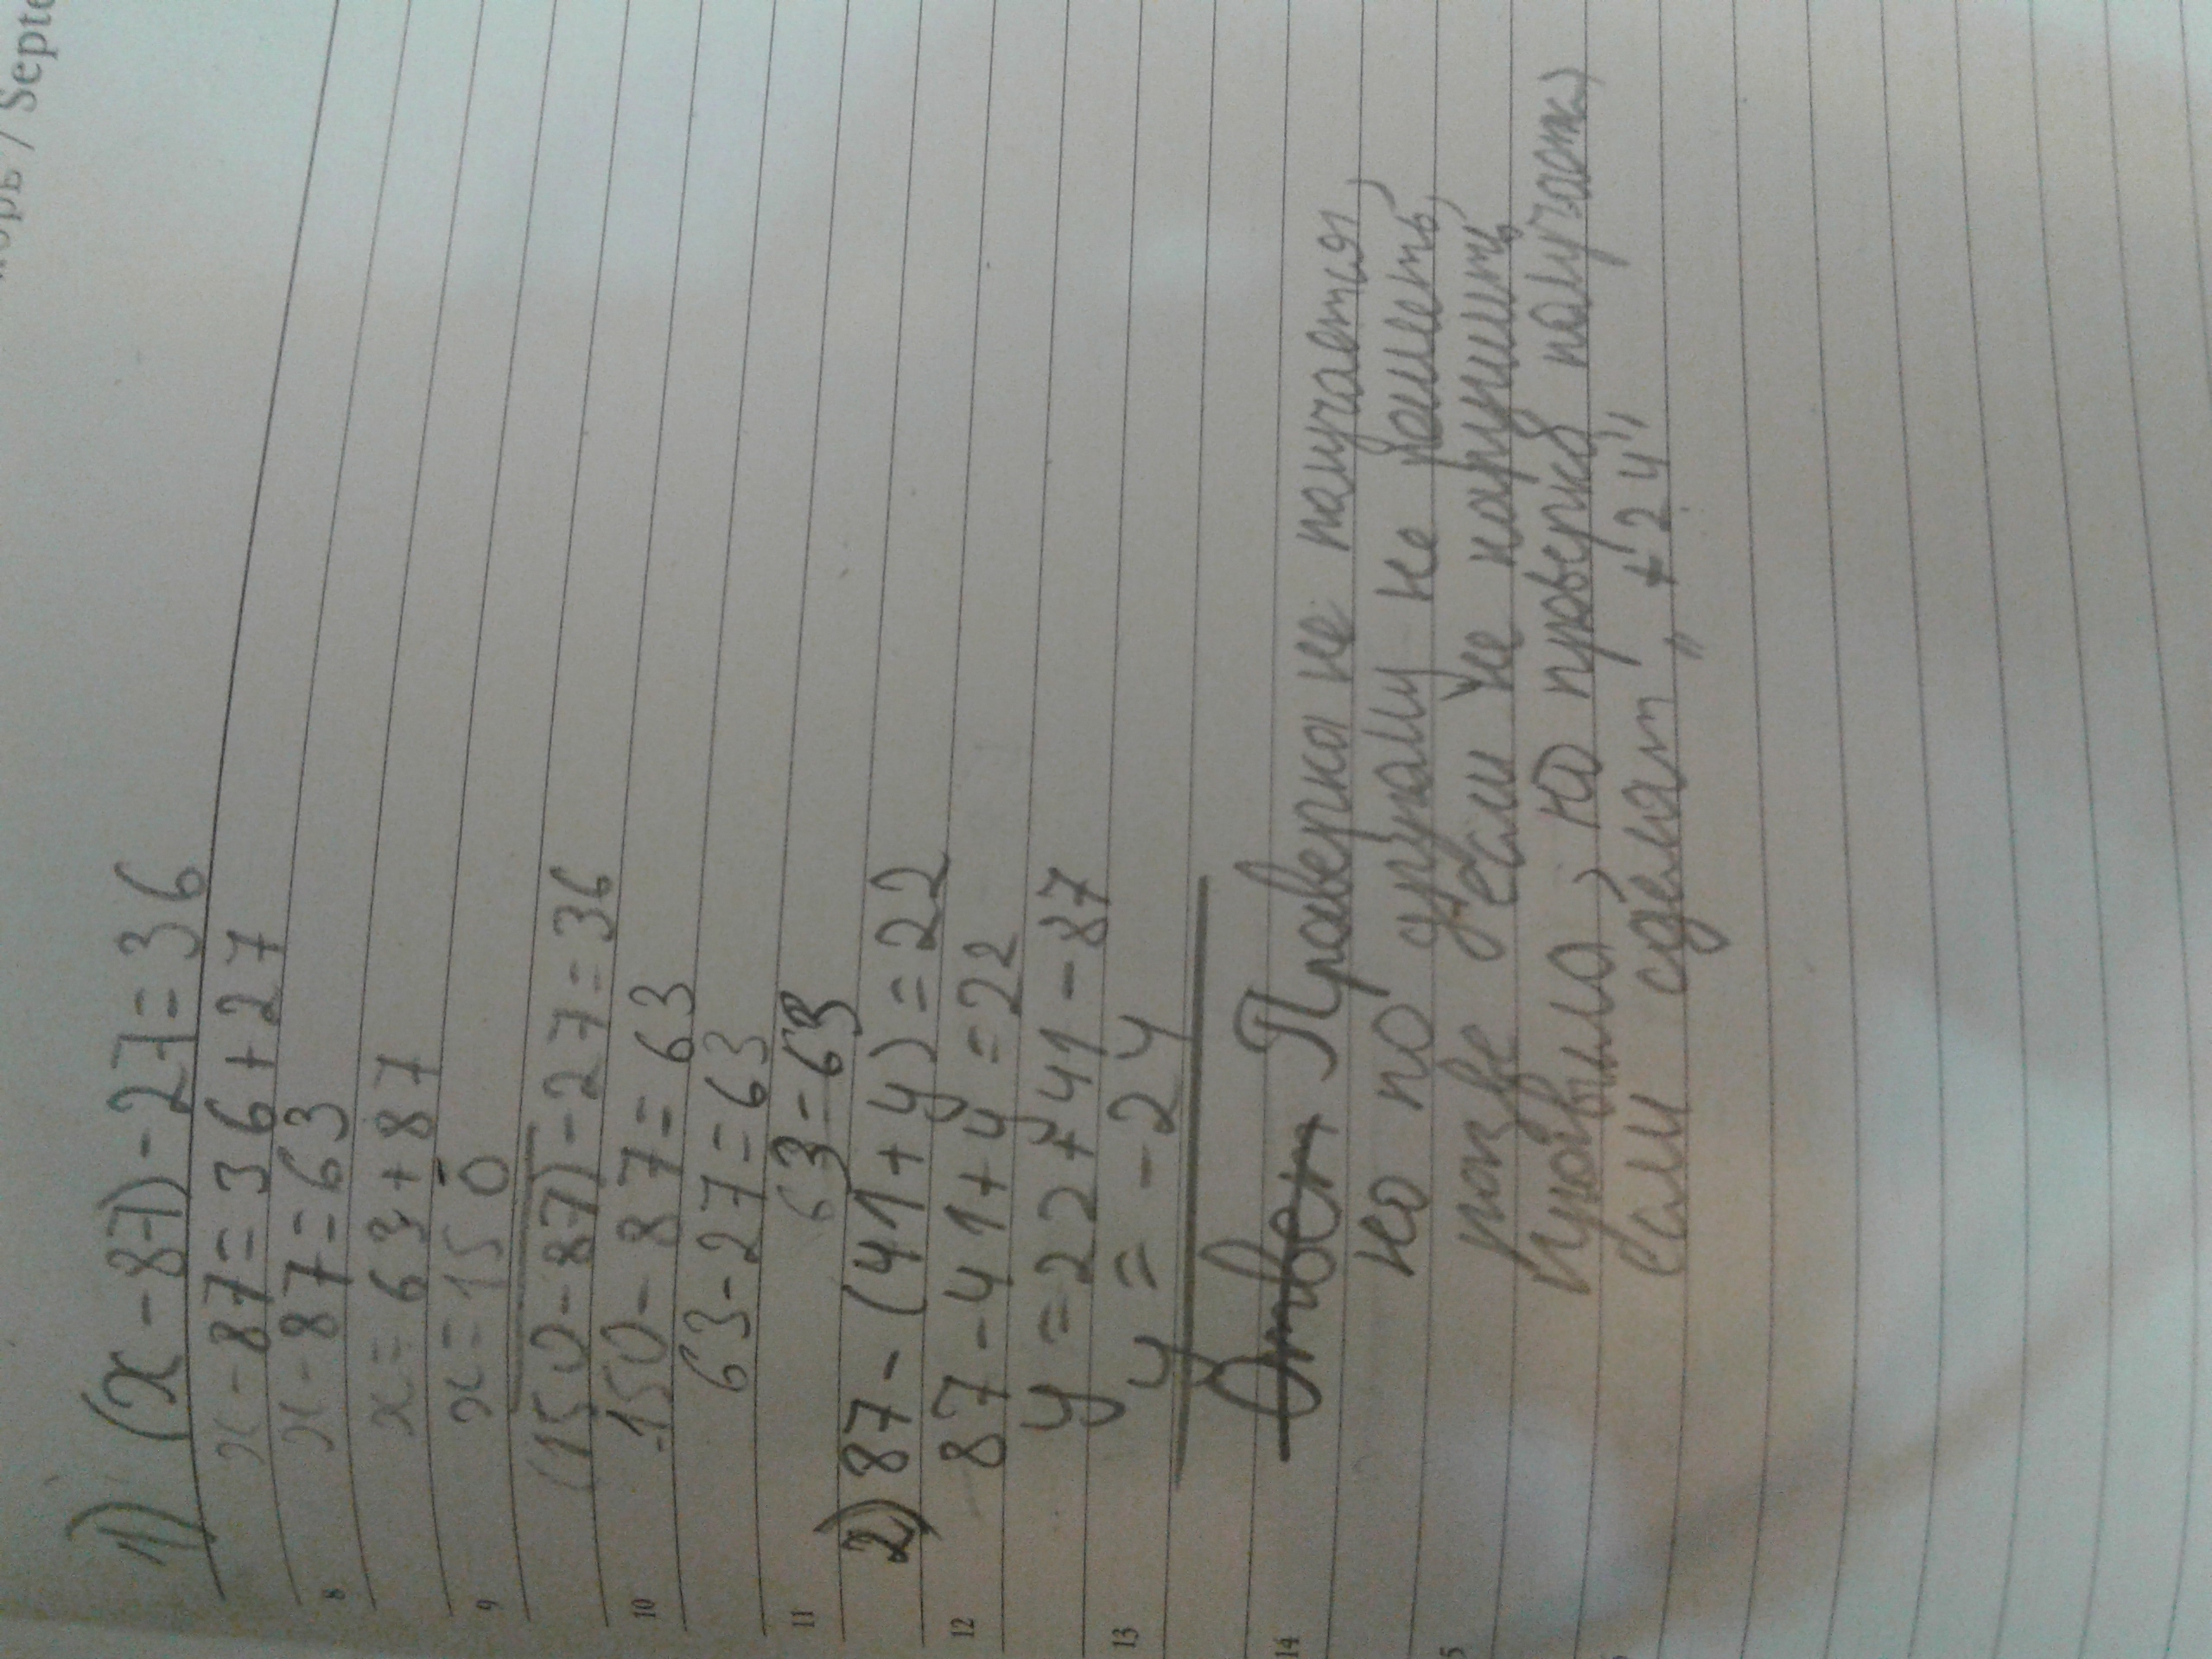 орь / Septe
1) (x-87)-27=36
x-87=36+27
x-87=63
x=63+87
x=150
(150-87)-27=36
150-87=63
63-27=63
63=63
2) 87-(41+y)=22
87-41+y=22
y=22+41-87
y=-24
Ответ Проверка не получается,
но по другому не решить,
разве если не нарушить
правило, но проверка получается)
если сделат „+24"
8
9
10
11
12
13
14
5